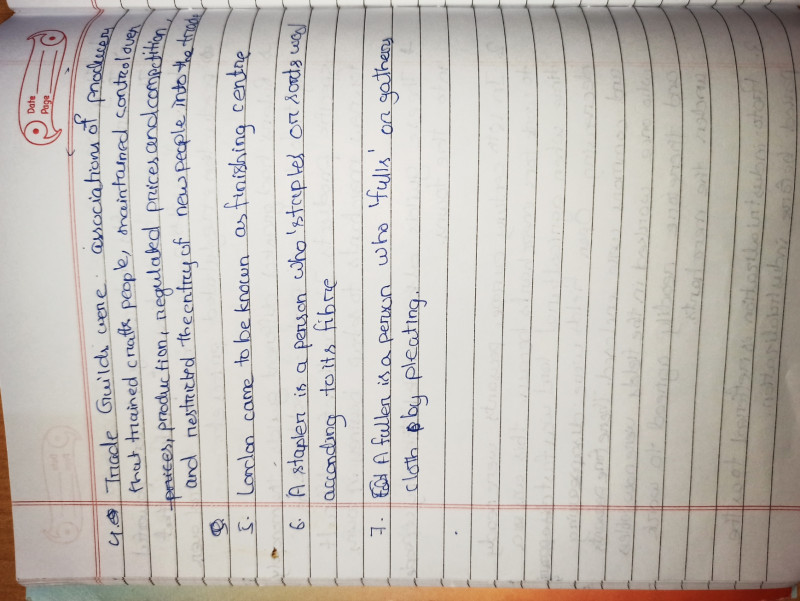 Date
Page
4. Trade Guilds were associations of producers
that trained craft people, maintained control over
prices, production, regulated prices and competition,
and restricted the entry of new people into the trade
5. London came to be known as finishing centre
6. A stapler is a person who 'staples' or sorts wool
according to its fibre
7. A fuller is a person who 'fulls' or gathers
cloth by pleating.